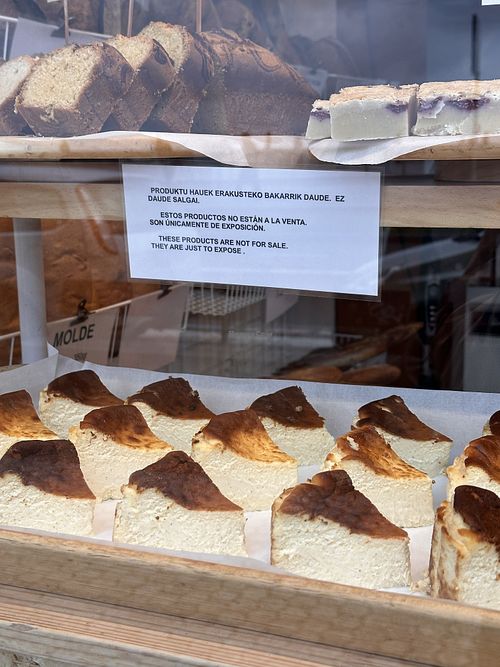 PRODUKTU HAUEK ERAKUSTEKO BAKARRIK DAUDE. EZ
DAUDE SALGAI.
ESTOS PRODUCTOS NO ESTÁN A LA VENTA.
SON ÚNICAMENTE DE EXPOSICIÓN.
THESE PRODUCTS ARE NOT FOR SALE.
THEY ARE JUST TO EXPOSE .
MOLDE